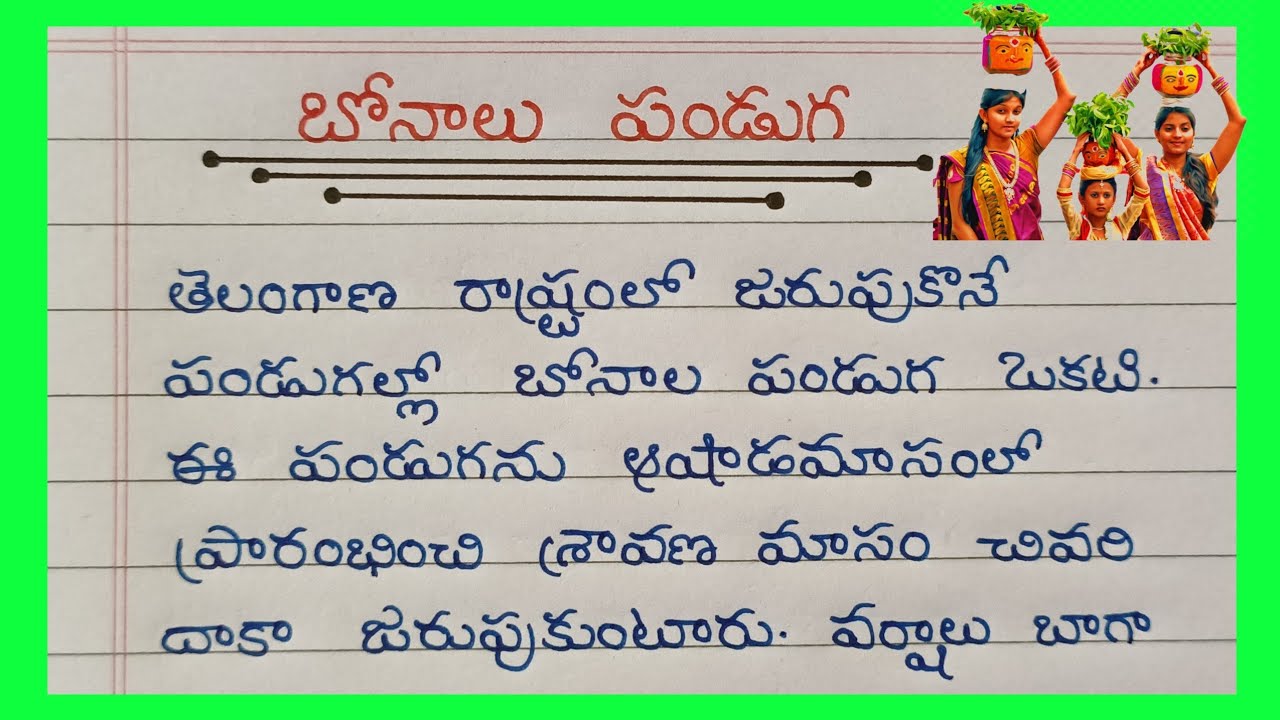 బోనాలు పండుగ
తెలంగాణ రాష్ట్రంలో జరుపుకొనే
పండుగల్లో బోనాల పండుగ ఒకటి.
ఈ పండుగను ఆషాడమాసంలో
ప్రారంభించి శ్రావణ మాసం చివరి
దాకా జరుపుకుంటూరు. వర్షాలు బాగా